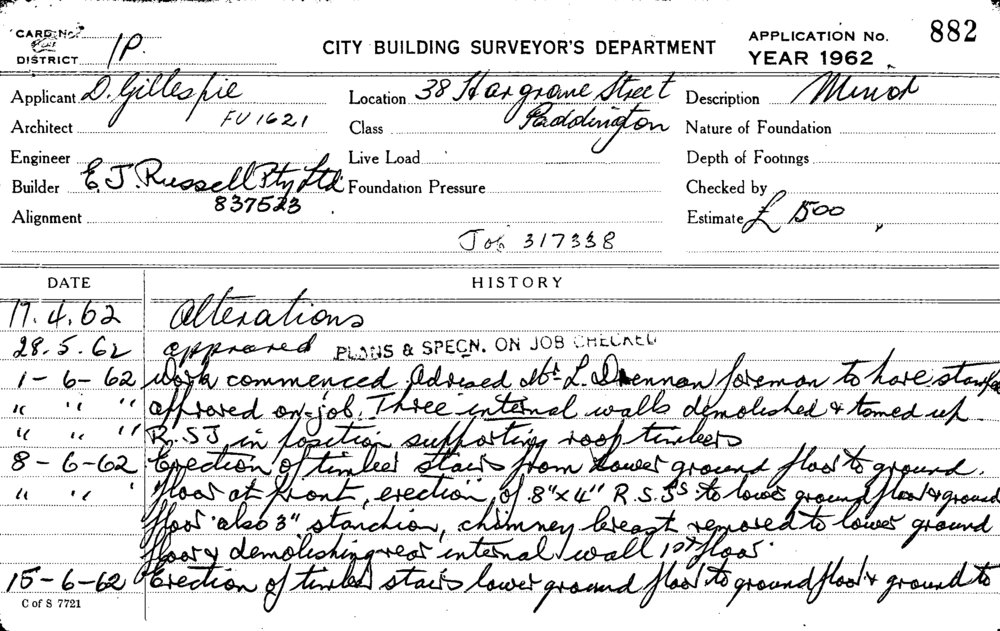 CARD No.
DISTRICT 1P.
CITY BUILDING SURVEYOR'S DEPARTMENT
APPLICATION No. 882
YEAR 1962
Applicant D. Gillespie
Location 38 Hargrave Street
Paddington
Description Minor
Architect FU 1621
Class
Nature of Foundation
Engineer
Live Load
Depth of Footings
Builder E. J. Russell Pty Ltd
837523
Foundation Pressure
Checked by
Alignment
Estimate £ 1500
Job 317338
DATE HISTORY
17.4.62 Alterations
28.5.62 approved PLANS & SPECN. ON JOB CHECKED
1-6-62 Work commenced Advised Mr L. Drennan foreman to have stamped
" " " approved on-job. Three internal walls demolished & tomed up
" " " R.S.J. in position supporting roof timbers
8-6-62 Erection of timber stairs from lower ground floor to ground.
" " " floor at front, erection of 8" x 4" R.S.Js to lower ground floor & ground
floor also 3" stanchion, chimney breast removed to lower ground
floor & demolishing rear internal wall 1st floor.
15-6-62 Erection of timber stairs lower ground floor to ground floor & ground to
C of S 7721